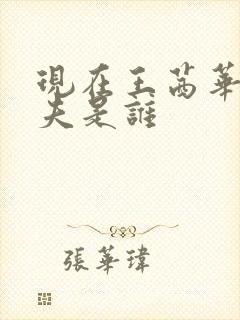 現在王茜華
夫是誰
張華瑋